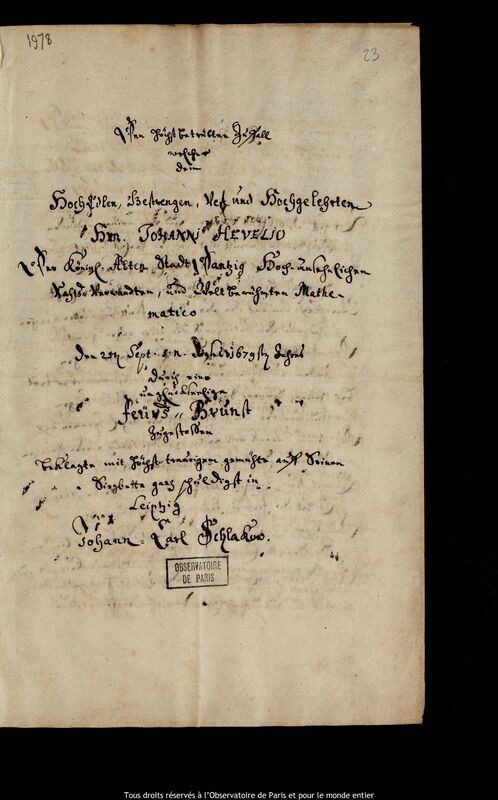 1978
23
Den höchstbetrübten Zufall
welcher
dem
HochEdlen, Gestrengen, Vest und Hochgelehrten
Hrn. JOHANNI HEVELIO
Der Königl. Alten Stadt Dantzig Hochansehnlichen
Rahts Verwandten, und Weltberühmten Mathe-
matico
den Sept. 1679 Jahres
durch eine
unglückseelige
Feüers Brunst
zugestossen
beklagte mit höchst traurigem gemühte auff Seinem
Siegbette gantz schuldigst in
Leiptzig
Johann Carl Schlakow.
OBSERVATOIRE
DE PARIS
Tous droits réservés à l'Observatoire de Paris et pour le monde entier